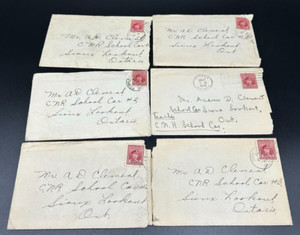 Mr. A D Clement
CNR School Car #2
Sioux Lookout
Ontario
Mr. A D Clement
CNR School Car #2
Sioux Lookout
Ontario
Mr. A D Clement
CNR School Car #2
Sioux Lookout
Ontario
Mr. D. Clement
School Car Sioux Lookout,
Ont.
C.N.R. School Car.
Mr. A D Clement
CNR School Car
Sioux Lookout
Ont.
Mr. A D Clement
CNR School Car #2
Sioux Lookout
Ontario